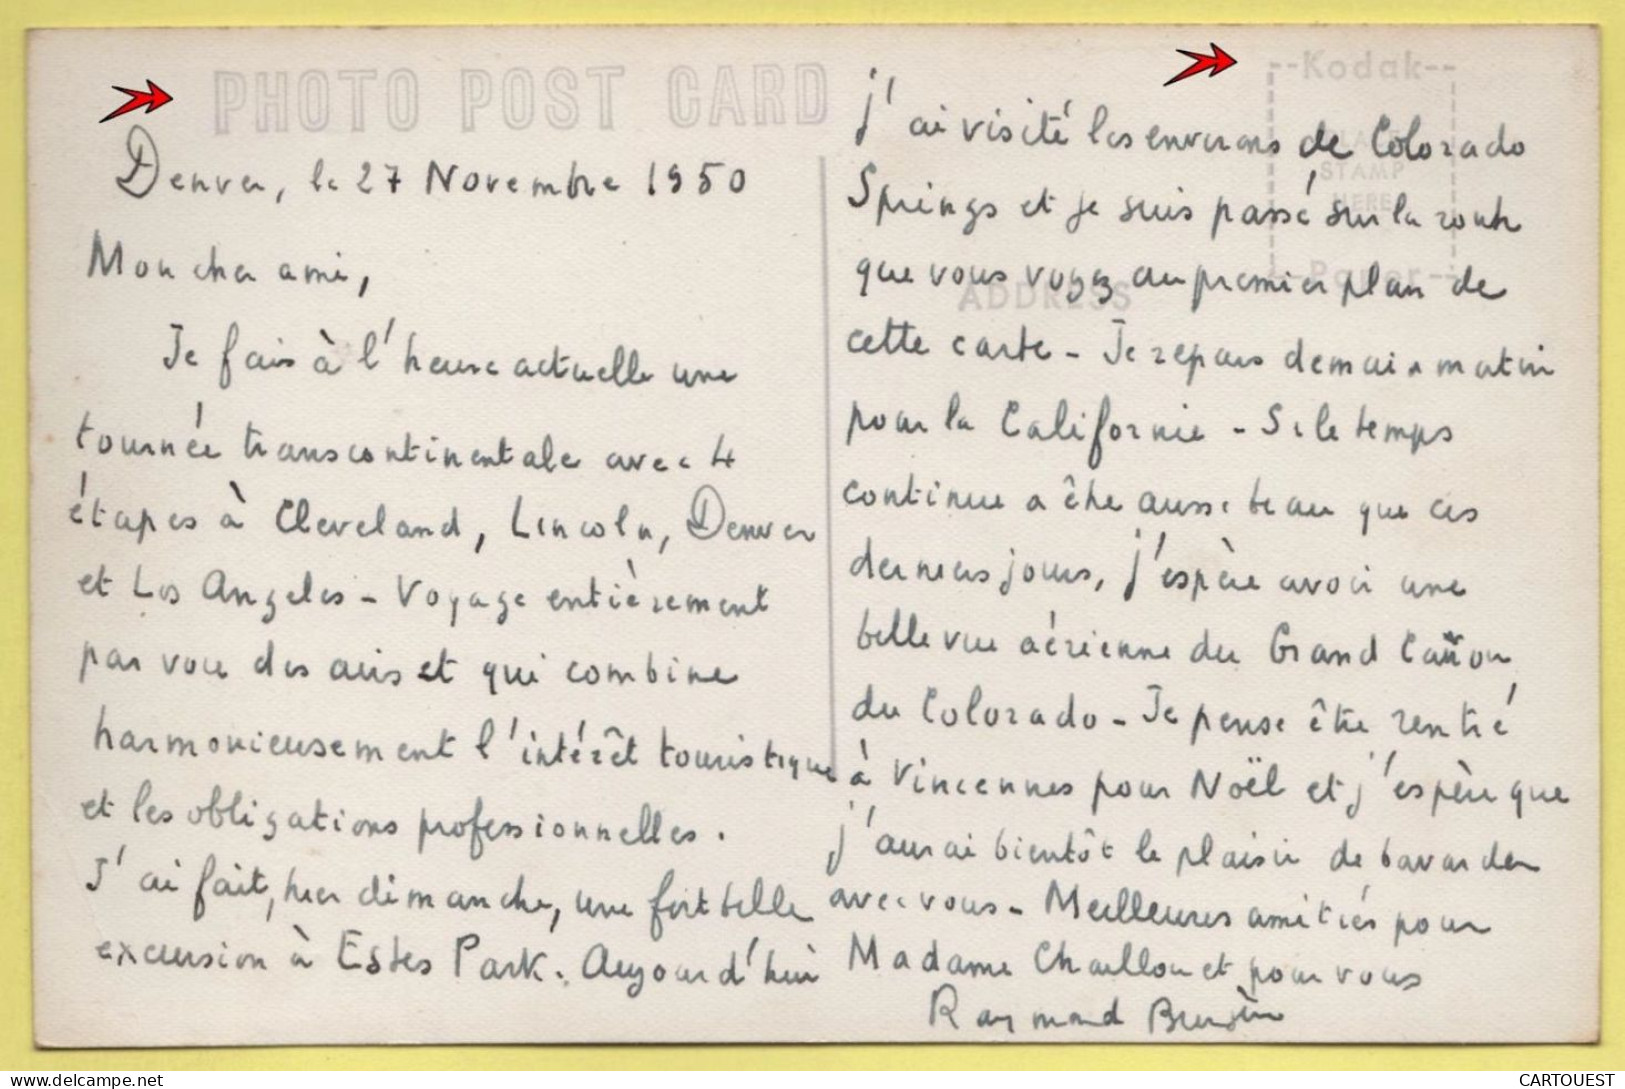 PHOTO POST CARD
Denver, le 27 Novembre 1950
Mon cher ami,
Je fais à l'heure actuelle une
tournée transcontinentale avec 4
étapes à Cleveland, Lincoln, Denver
et Los Angeles - Voyage entièrement
par voie des airs et qui combine
harmonieusement l'intérêt touristique
et les obligations professionnelles.
J'ai fait, hier dimanche, une fort belle
excursion à Estes Park. Aujourd'hui
--Kodak--
STAMP
HERE
ADDRESS
j'ai visité les environs de Colorado
Springs et je suis passé sur la route
que vous voyez au premier plan de
cette carte - Je repars demain matin
pour la Californie - Si le temps
continue a être aussi beau que ces
derniers jours, j'espère avoir une
belle vue aérienne du Grand Cañon
du Colorado - Je pense être rentré
à Vincennes pour Noël et j'espère que
j'aurai bientôt le plaisir de bavarder
avec vous - Meilleures amitiés pour
Madame Chaillou et pour vous
Raymond
CARTOUEST